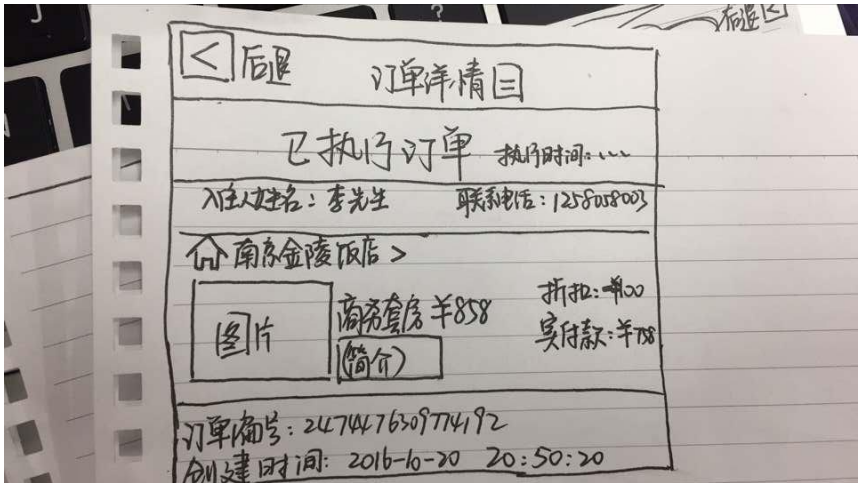 后退
< 后退 订单详情
已执行订单 执行时间:...
入住人姓名:李先生 联系电话:1258058003
南京金陵饭店 >
图片 商务套房 ¥858 折扣:¥100
(简介) 实付款:¥758
订单编号:2474476309774192
创建时间: 2016-10-20 20:50:20